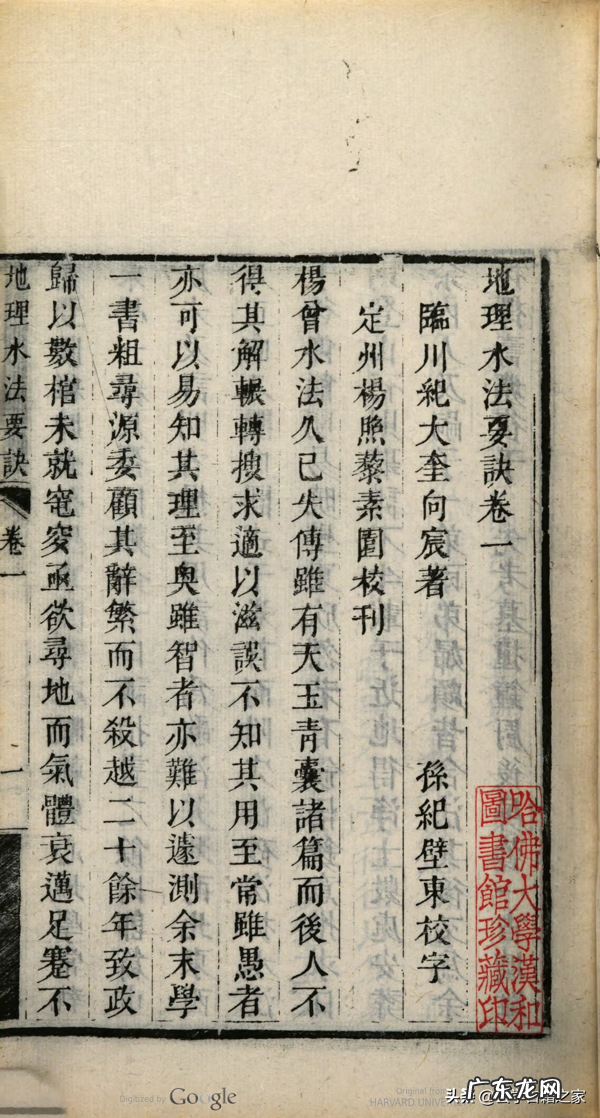 地理水法要訣卷一
臨川紀大奎向宸著　孫紀壁東校字
定州楊照藜素園校刊
楊曾水法久已失傳雖有天玉青囊諸篇而後人不
得其解輾轉搜求適以滋誤不知其用至常雖愚者
亦可以易知其理至奥雖智者亦難以遽測余末學
一書粗尋源委顧其辭繁而不殺越二十餘年致政
歸以數棺未就窀穸亟欲尋地而氣體衰邁足蹇不
地理水法要訣　卷一　一
哈佛大學漢和
圖書館珍藏印
Digitized by Google
Original from
HARVARD UNIVE
头条
之家
广东龙网